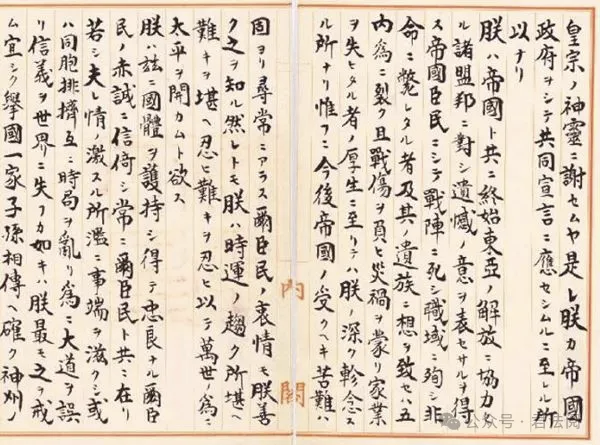 皇宗ノ神靈ニ謝セムヤ是レ朕カ帝國
政府ヲシテ共同宣言ニ應セシムルニ至レル所
以ナリ
朕ハ帝國ト共ニ終始東亞ノ解放ニ協力セ
ル諸盟邦ニ對シ遺憾ノ意ヲ表セサルヲ得
ス帝國臣民ニシテ戰陣ニ死シ職域ニ殉シ非
命ニ斃レタル者及其ノ遺族ニ想ヲ致セハ五
内爲ニ裂ク且戰傷ヲ負ヒ災禍ヲ蒙リ家業
ヲ失ヒタル者ノ厚生ニ至リテハ朕ノ深ク軫念ス
ル所ナリ惟フニ今後帝國ノ受クヘキ苦難ハ
内閣
固ヨリ尋常ニアラス爾臣民ノ衷情モ朕善
ク之ヲ知ル然レトモ朕ハ時運ノ趨ク所堪ヘ
難キヲ堪ヘ忍ヒ難キヲ忍ヒ以テ萬世ノ爲ニ
太平ヲ開カムト欲ス
朕ハ茲ニ國體ヲ護持シ得テ忠良ナル爾臣
民ノ赤誠ニ信倚シ常ニ爾臣民ト共ニ在リ
若シ夫レ情ノ激スル所濫ニ事端ヲ滋クシ或
ハ同胞排擠互ニ時局ヲ亂リ爲ニ大道ヲ誤
リ信義ヲ世界ニ失フカ如キハ朕最モ之ヲ戒
ム宜シク擧國一家子孫相傳ヘ確ク神州ノ
公众号·君法阅